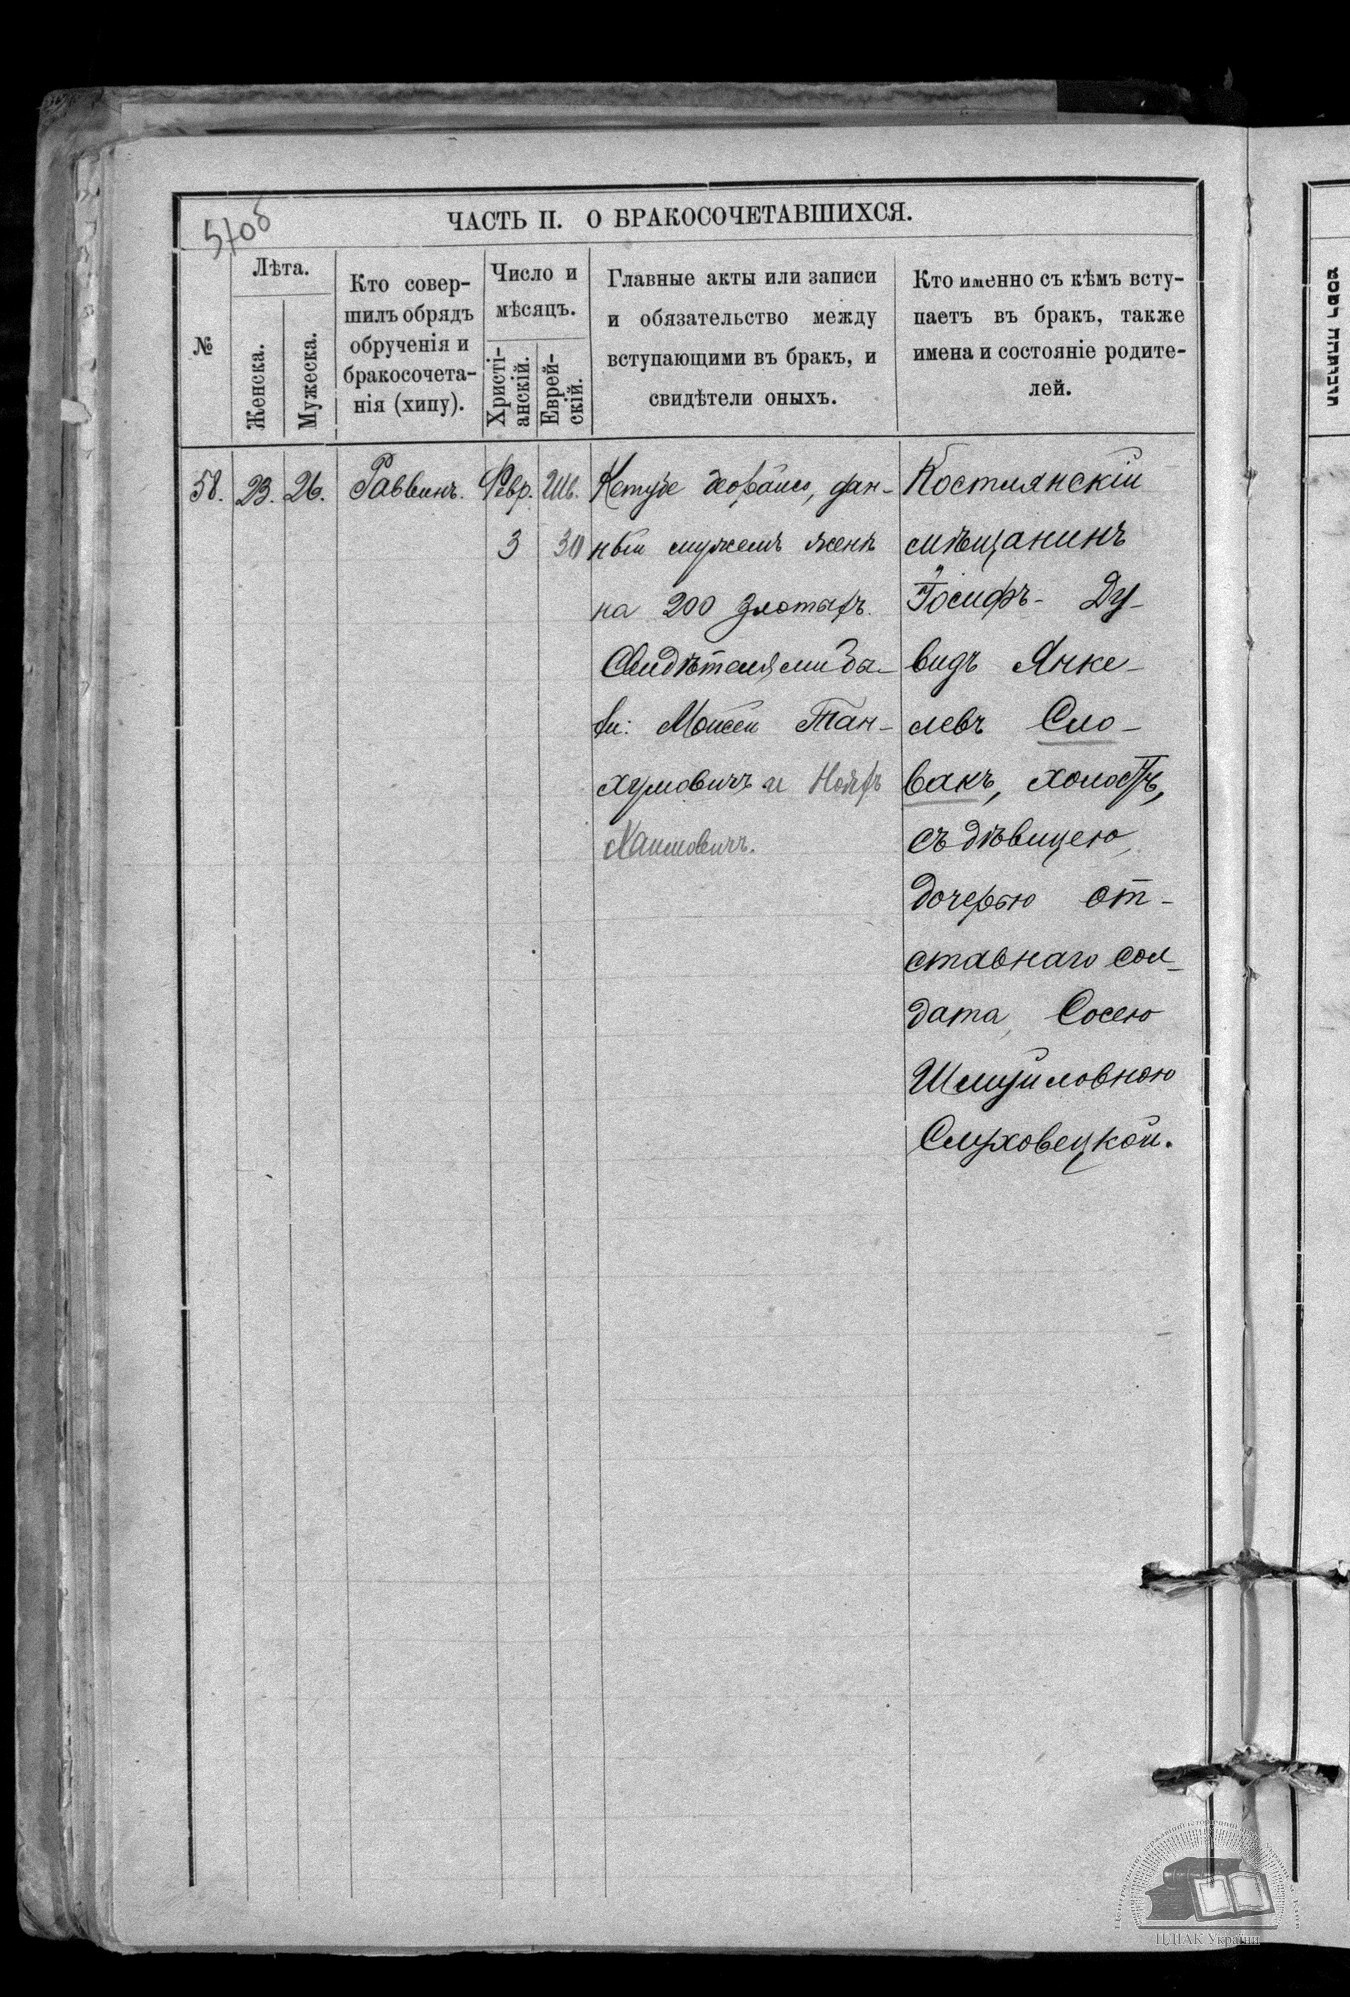 570б
ЧАСТЬ II. О БРАКОСОЧЕТАВШИХСЯ.
№
Лѣта.
Женска.
Мужеска.
Кто совер-
шилъ обрядъ
обрученія и
бракосочета-
нія (хипу).
Число и
мѣсяцъ.
Христі-
анскій.
Еврей-
скій.
Главные акты или записи
и обязательство между
вступающими въ бракъ, и
свидѣтели оныхъ.
Кто именно съ кѣмъ всту-
паетъ въ бракъ, также
имена и состояніе родите-
лей.
58. 23. 26. Раввинъ. Февр. Шв.
3 30
Кетубе дан-
ный мужемъ женѣ
на 200 злотыхъ.
Свидѣтелями бы-
ли: Моисей Тан-
хумовичъ и
Хаимовичъ.
Костянскій
мѣщанинъ
Іосифъ- Ду-
видъ Янке-
левъ Сло-
вакъ, холостъ,
съ дѣвицею,
дочерью от-
ставнаго сол-
дата, Сосею
Шмуйловною
Слуховецкой.
ЦДІАК України